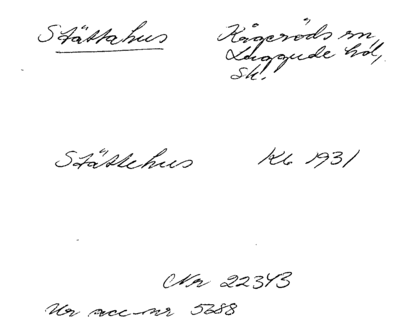 Stättahus Kågeröds sn,
Luggude hd,
Sk.
Stättehus Kb 1931
CNr 22343
Ur acc-nr 5688